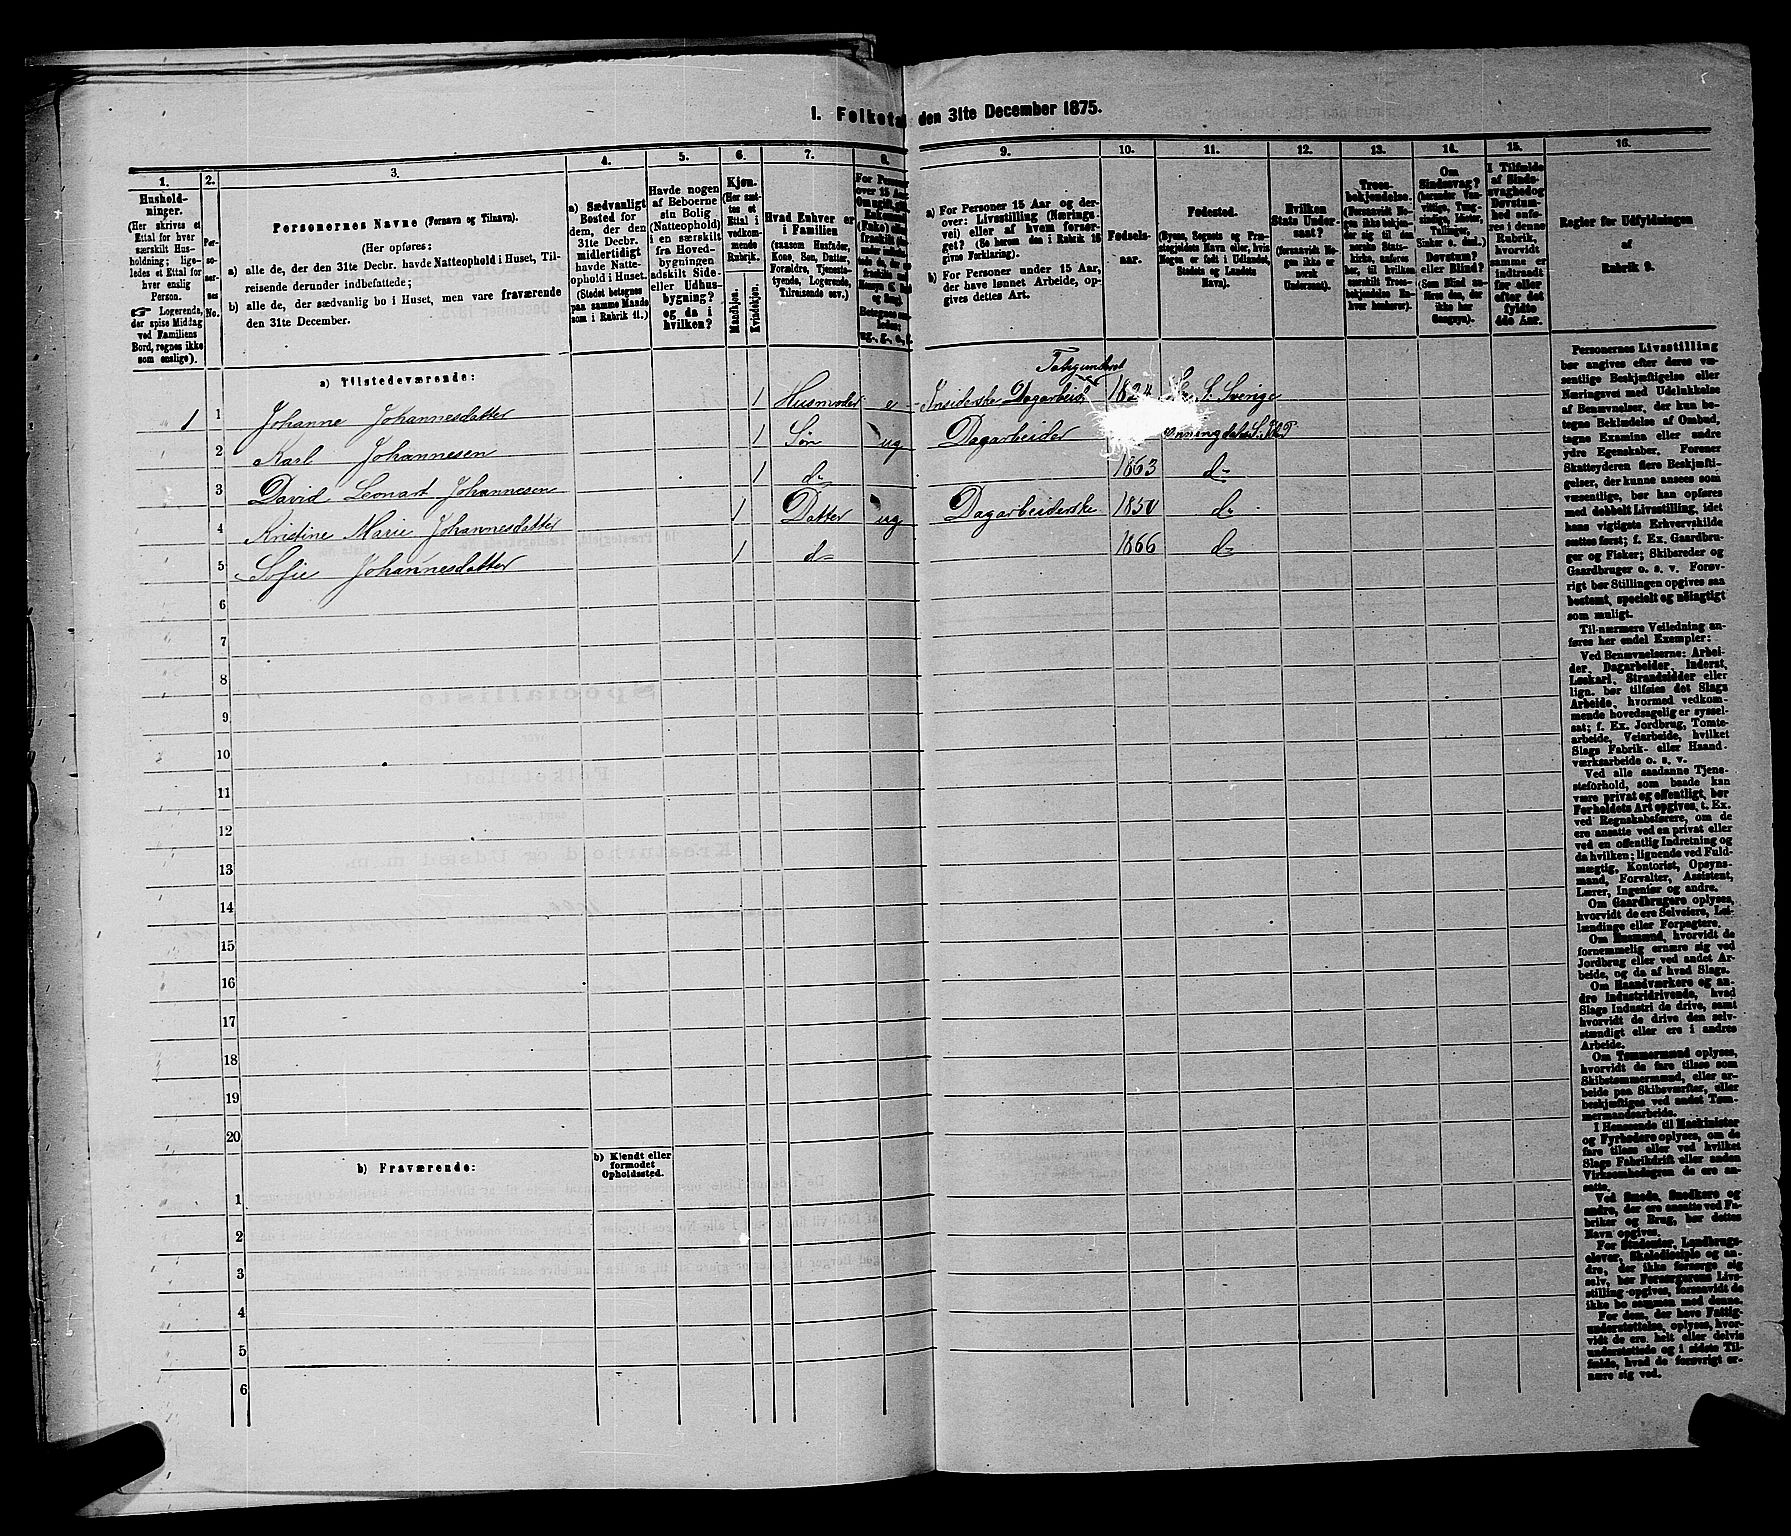 1. Folketal den 31te December 1875.
1. 2. 3. 4. 5. 6. 7. 8. 9. 10. 11. 12. 13. 14. 15. 16.
Hushold-
ninger.
(Her skrives et
Ettal for hver
særskilt Hus-
holdning; lige-
ledes et Ettal for
hver enslig
Person.
☞ Logerende,
der spise Middag
ved Familiens
Bord, regnes ikke
som enslige).
Per-
so-
ner-
nes
No.
Personernes Navne (Fornavn og Tilnavn).
(Her opføres:
a) alle de, der den 31te Decbr. havde Natteophold i Huset, Til-
reisende derunder indbefattede;
b) alle de, der sædvanlig bo i Huset, men vare fraværende
den 31te December.
a) Sædvanligt
Bosted for
dem, der den
31te Decbr.
midlertidigt
havde Natte-
ophold i Huset.
(Stedet betegnes
paa samme Maade
som i Rubrik 11.)
Havde nogen
af Beboerne
sin Bolig
(Natteophold)
i en særskilt
fra Hoved-
bygningen
adskilt Side-
eller Udhus-
bygning?
og da i
hvilken?
Kjøn.
(Her sæt-
tes et
Ettal i
vedkom-
mende
Rubrik.
Mandkjøn.
Kvindekjøn.
Hvad Enhver er
i Familien
(saasom Husfader,
Kone, Søn, Datter,
Forældre, Tjeneste-
tyende, Logerende,
Tilreisende osv.)
For Personer
over 15 Aar
a) For Personer 15 Aar og der-
over: Livsstilling (Nærings-
vei) eller af hvem forsør-
get? (Se herom den i Rubrik 16
givne Forklaring).
b) For Personer under 15 Aar,
der have lønnet Arbeide, op-
gives dettes Art.
Fødsels-
aar.
Fødested.
(Byens, Sognets og Præ-
stegjeldets Navn eller, hvis
Nogen er født i Udlandet,
Stedets og Landets
Navn).
Hvilken
Stats Under-
saat?
(forsaavidt No-
gen ikke er
norsk
Undersaat).
Troes-
bekjendelse.
(Forsaavidt No-
gen ikke bekjen-
der sig til den
norske Stats-
kirke, anføres
her, til hvilken
særskilt Troes-
bekjendelse En-
hver henhører).
Om
Sindssvag?
(herunder Van-
vittige, Tung-
sindige, Idioter,
Tullinger,
Sinker o. desl.)
Døvstum?
eller Blind?
(Som Blind an-
føres den, der
ikke har
Gangsyn).
I Tilfælde
af Sinds-
svaghed og
Døvstum-
hed anfø-
res i denne
Rubrik,
hvorvidt
samme er
indtraadt
før eller
efter det
fyldte
4de Aar.
Regler for Udfyldningen
af
Rubrik 9.
a) Tilstedeværende:
1 1 Johanne Johannesdatter 1 Husmoder e Dagarbeide 1824 Sverige
2 Karl Johannesen 1 Søn ug Dagarbeider
3 David Leonart Johannesen 1 do 1863 do
4 Kristine Marie Johannesdatter 1 Datter ug Dagarbeiderske 1850 do
5 Sofie Johannesdatter 1 do 1866 do
6
7
8
9
10
11
12
13
14
15
16
17
18
19
20
b) Fraværende: b) Kjendt eller
formodet
Opholdssted.
1
2
3
4
5
6
Personernes Livsstilling
bør angives efter deres væ-
sentlige Beskjæftigelse eller
Næringsvei med Udelukkelse
af Benævnelser, der kun be-
tegne Beklædelse af Ombud,
tagne Examina eller andre
ydre Egenskaber. Forener
Skatteyderen flere Beskjæfti-
gelser, der kunne ansees som
væsentlige, bør han opføres
med dobbelt Livsstilling, idet
hans vigtigste Erhvervskilde
sættes først; f. Ex. Gaardbru-
ger og Fisker; Skibsreder og
Gaardbruger o. s. v. Forøv-
rigt bør Stillingen opgives saa
bestemt, specielt og nöiagtigt
som muligt.
Til nærmere Veiledning an-
føres her endel Exempler:
Ved Benævnelserne: Arbei-
der, Dagarbeider, Inderst,
Løskarl, Strandsidder eller
lign. bør tilføies det Slags
Arbeide, hvormed vedkom-
mende hovedsagelig er syssel-
sat; f. Ex. Jordbrug, Tomte-
arbeide, Veiarbeide, hvilket
Slags Fabrik- eller Haand-
værksarbeide o. s. v.
Ved alle saadanne Tjene-
steforhold, som baade kan
være privat og offentligt, bør
Forholdets Art opgives, t. Ex.
ved Regnskabsførere, om de
ere ansatte ved en privat eller
ved en offentlig Indretning og
da hvilken; lignende ved Fuld-
mægtig, Kontorist, Opsyns-
mand, Forvalter, Assistent,
Lærer, Ingeniør og andre.
Om Gaardbrugere oplyses,
hvorvidt de ere Selveiere, Lei-
lændinge eller Forpagtere.
Om Husmænd, hvorvidt de
fornemmelig ernære sig ved
Jordbrug eller ved andet Ar-
beide, og da af hvad Slags.
Om Haandværkere og an-
dre Industridrivende, hvad
Slags Industri de drive, samt
hvorvidt de drive den selv-
stændigt eller ere i andres
Arbeide.
Om Tømmermænd oplyses,
hvorvidt de fare tilsøs som
Skibstømmermænd, eller ar-
beide paa Skibsværfter, eller
beskjæftiges ved andet Tøm-
mermandsarbeide.
I Henseende til Maskinister
og Fyrbødere oplyses, om de
fare tilsøs eller ved hvilket
Slags Fabrikdrift eller anden
Virksomhedsgren de ere an-
satte.
Ved Smede, Snedkere og
andre, der ere ansatte ved Fa-
briker og Brug, bør dettes
Navn opgives.
For Studenter, Landbrugs-
elever, Skoledisciple og an-
dre, der ikke forsørge sig
selv, bør Forsørgerens Livs-
stilling opgives, forsaavidt de
ikke bo sammen med denne.
For dem, der have Fattig-
understøttelse, oplyses, hvor-
vidt de ere helt eller delvis
understøttede og i sidste Til-
fælde, hvad de forøvrigt er-
nære sig ved.